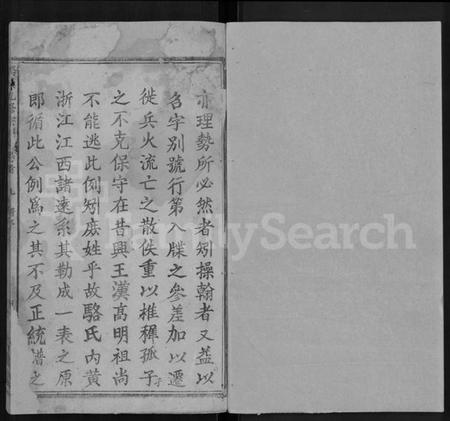 亦理勢所必然者矧操翰者又益以
名字別號行第入牒之參差加以遷
徙兵火流亡之散佚重以椎穉孤子
之不克保守在昔興王漢高明祖尚
不能逃此例矧庶姓乎故駱氏內黃
浙江江西諸遠系其勒成一表之原
即循此公例爲之其不及正統潛之
FamilySearch